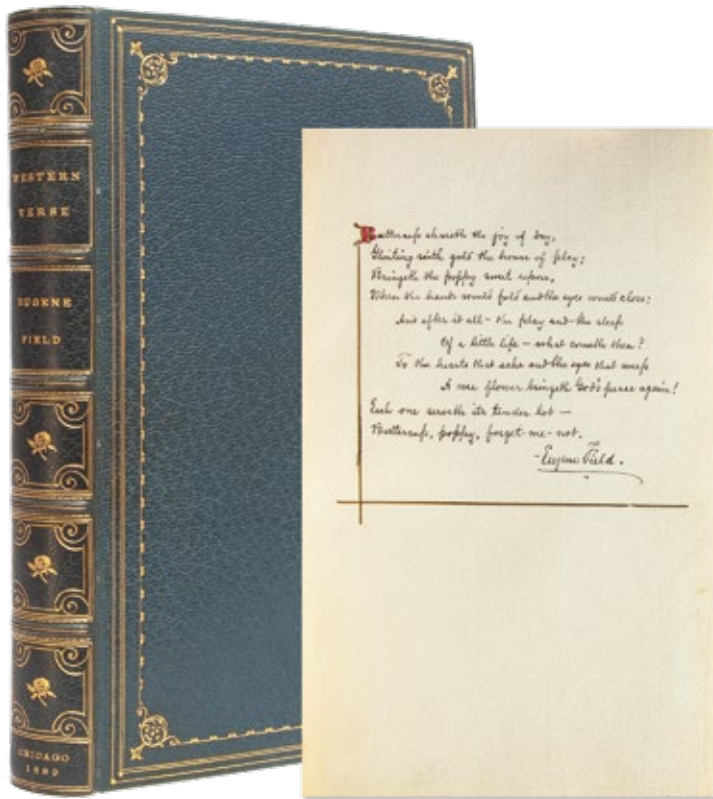 WESTERN
VERSE
EUGENE
FIELD
CHICAGO
1889
Buttercup shareth the joy of day,
Glinting with gold the hours of play;
Bringeth the poppy sweet repose,
When the hands would fold and the eyes would close;
And after it all – the play and the sleep
Of a little life – what cometh then?
To the hearts that ache and the eyes that weep
A wee flower bringeth God's peace again!
Each one serveth its tender lot –
Buttercup, poppy, forget-me-not.
– Eugene Field.